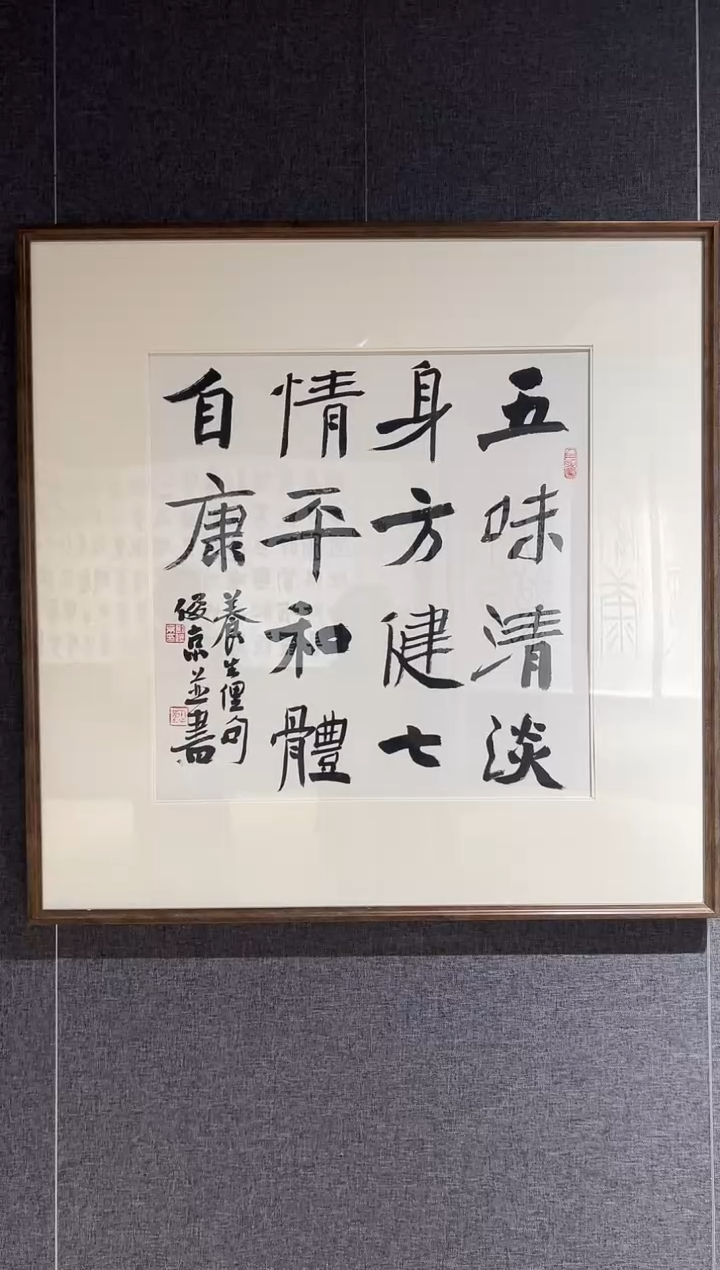 五味清淡
身方健七
情平和體
自康
養生俚句
俊京並書